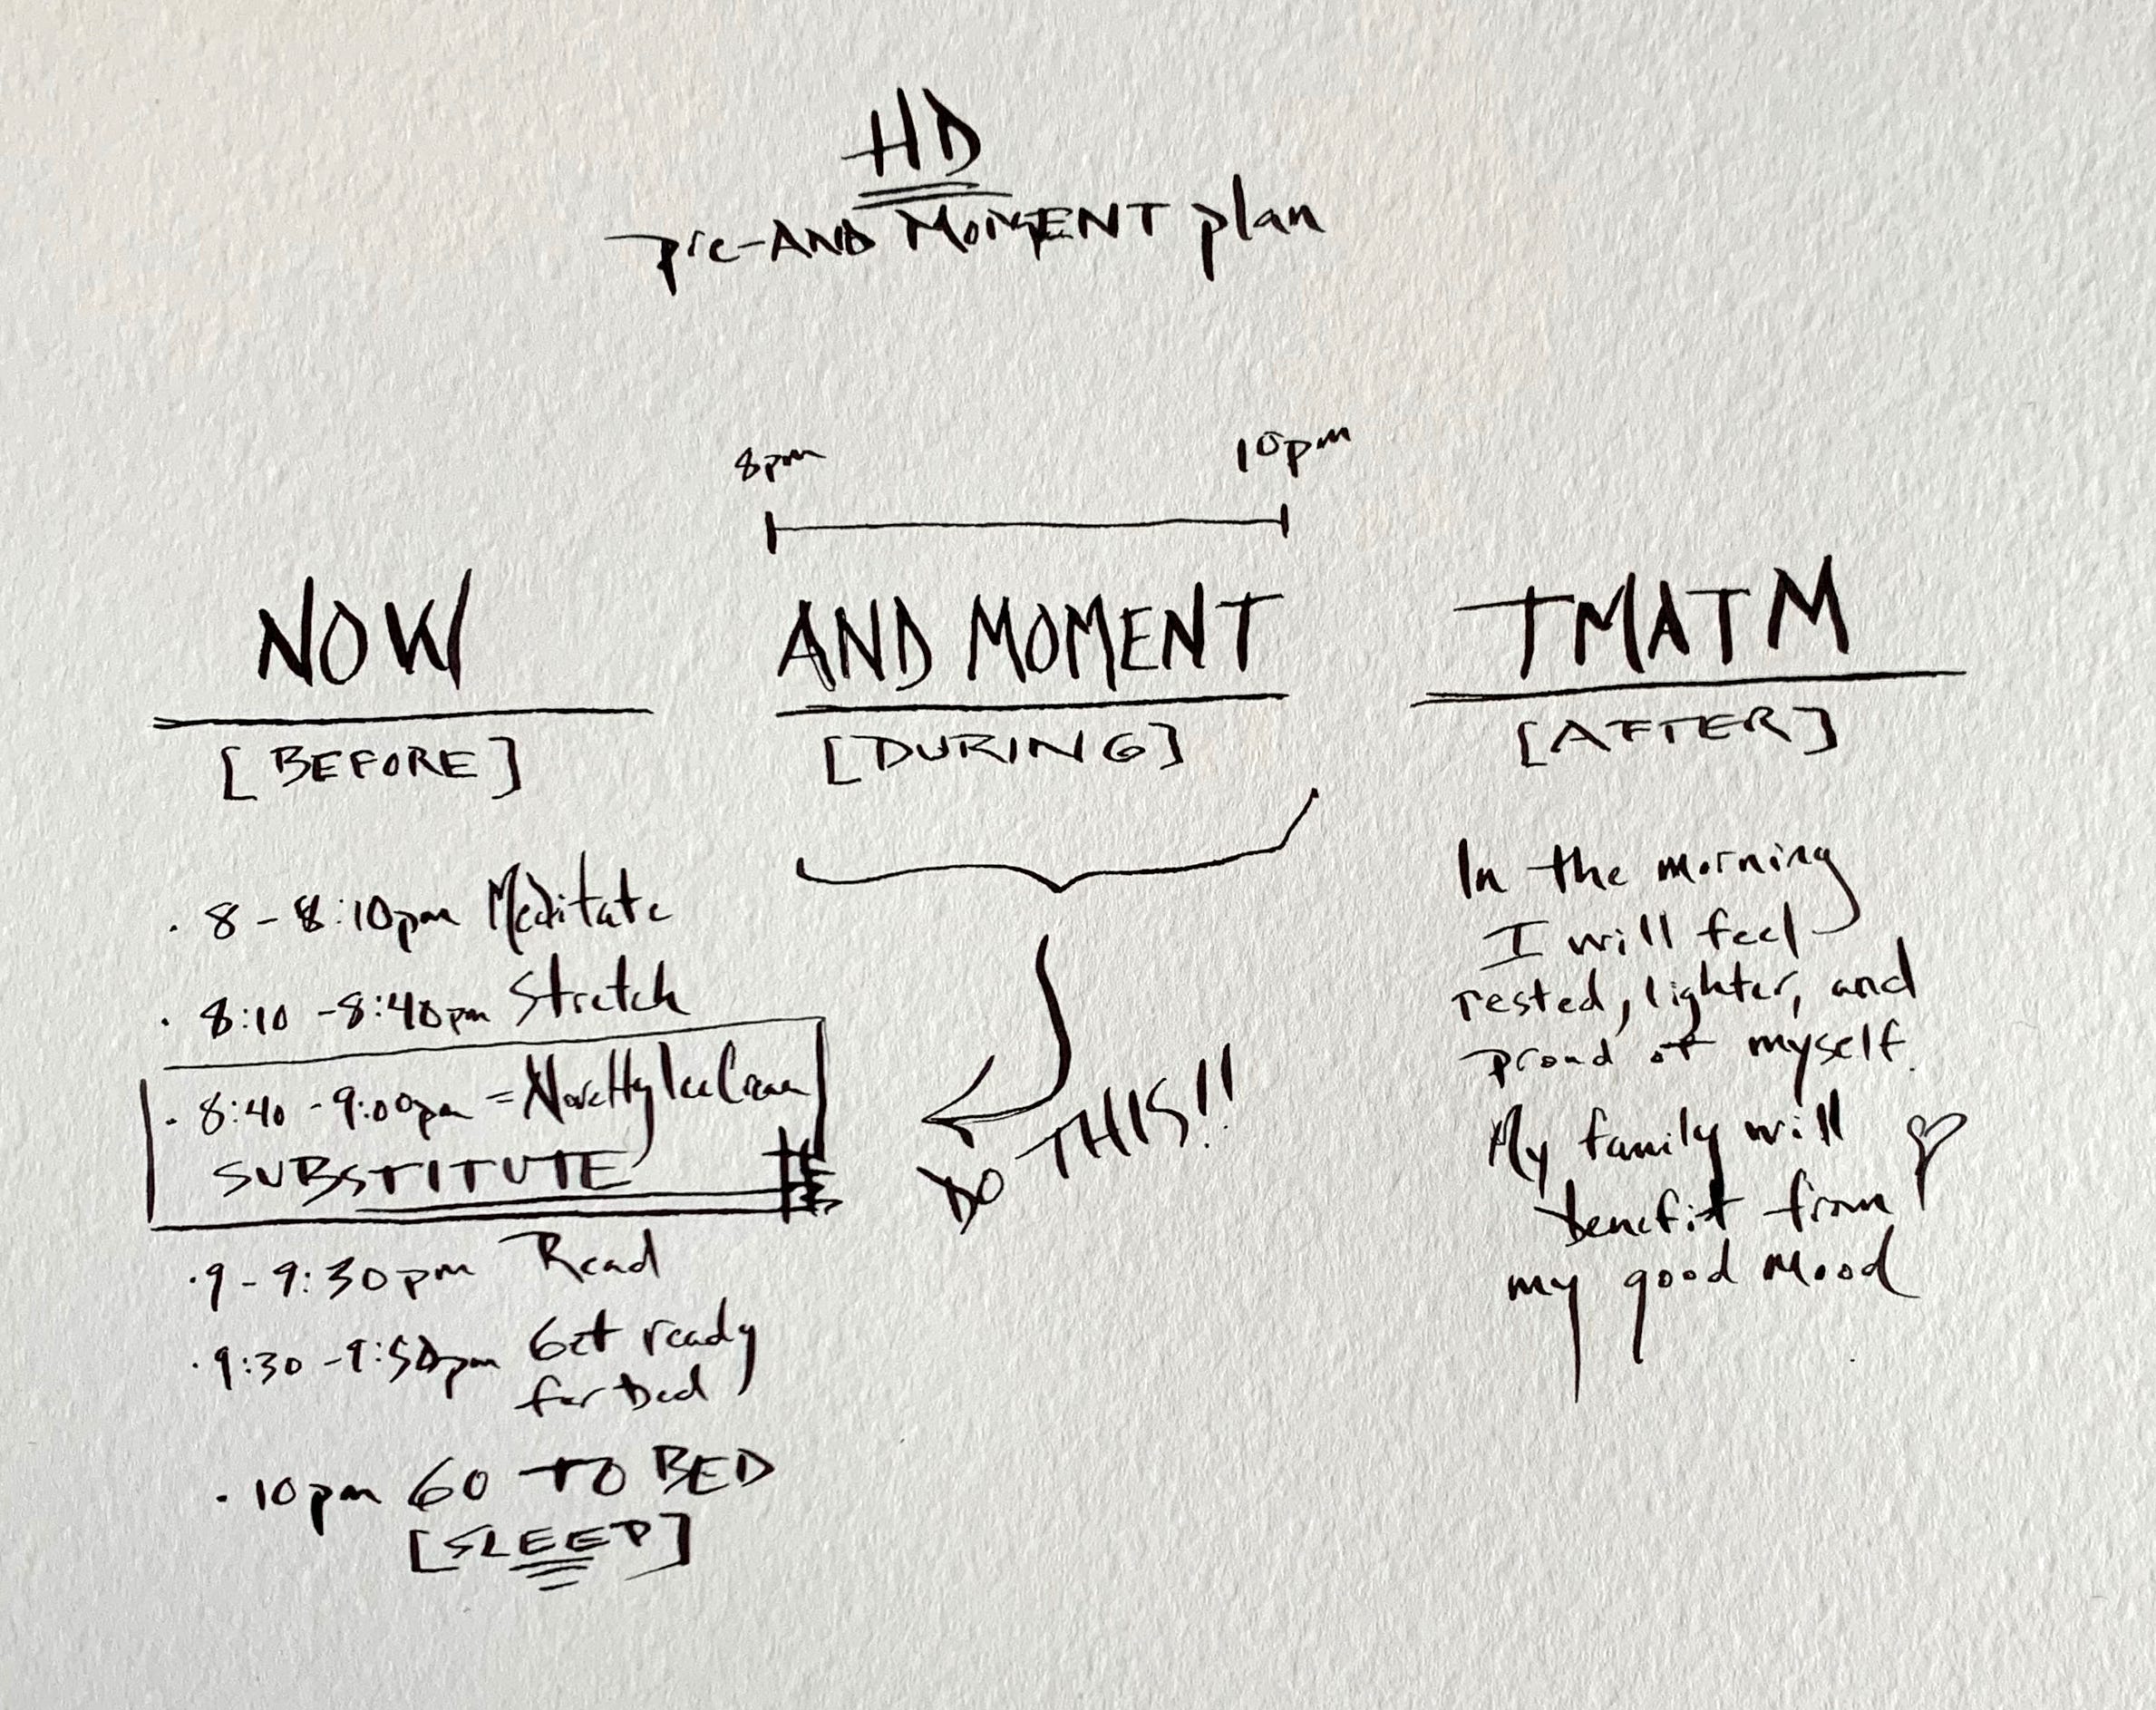 HD
pre-AND MOMENT plan
8pm 10pm
NOW
[BEFORE]
· 8 - 8:10pm Meditate
· 8:10 - 8:40pm Stretch
· 8:40 - 9:00pm = Novelty Ice Cream
SUBSTITUTE
· 9 - 9:30pm Read
· 9:30 - 9:50pm Get ready
for bed
· 10pm GO TO BED
[SLEEP]
AND MOMENT
[DURING]
DO THIS!!
TMATM
[AFTER]
In the morning
I will feel
rested, lighter, and
proud of myself.
My family will
benefit from
my good mood